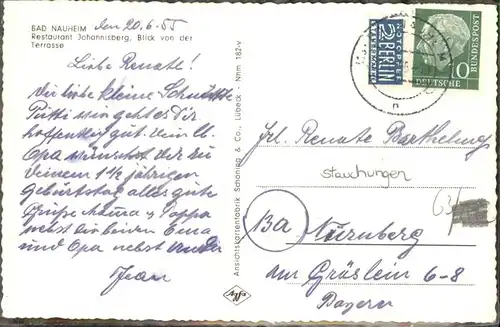 BAD NAUHEIM den 20.6.55
Restaurant Johannisberg, Blick von der
Terrasse
Liebe Renate!
Du liebe kleine
Putti wie geht es Dir
hoffentlich gut. dein U.
Opa wünscht dir zu
deinem 1½ jährigen
Geburtstag alles gute
Grüße Mama u Pappa
nebst die beiden Oma
und Opa nebst
Ansichtskartenfabrik Schöning & Co., Lübeck · Nhm 182-v
Agfa
2 NOTOPFER
BERLIN
STEUERMARKE
DEUTSCHE BUNDESPOST
10
Frl. Renate Barthelmeß
Stauchungen
63/
13a Nürnberg
am Gräslein 6-8
Bayern